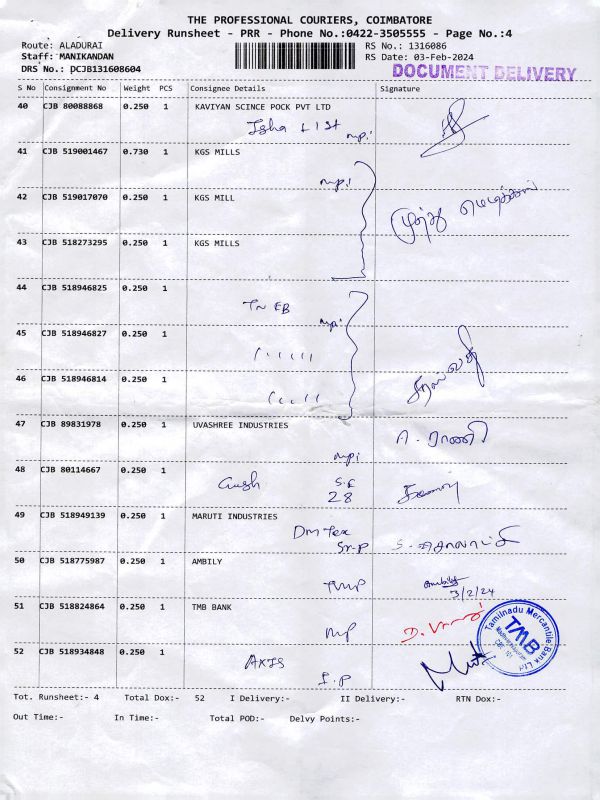 THE PROFESSIONAL COURIERS, COIMBATORE
Delivery Runsheet - PRR - Phone No.:0422-3505555 - Page No.:4
Route: ALADURAI
RS No.: 1316086
Staff: MANIKANDAN
RS Date: 03-Feb-2024
DRS No.: PCJB131608604
DOCUMENT DELIVERY
S No Consignment No Weight PCS Consignee Details Signature
40 CJB 80088868 0.250 1 KAVIYAN SCINCE POCK PVT LTD
mpi
41 CJB 519001467 0.730 1 KGS MILLS
mpi
42 CJB 519017070 0.250 1 KGS MILL
43 CJB 518273295 0.250 1 KGS MILLS
44 CJB 518946825 0.250 1
TN EB
mpi
45 CJB 518946827 0.250 1
46 CJB 518946814 0.250 1
47 CJB 89831978 0.250 1 UVASHREE INDUSTRIES
A. ராணி
mpi
48 CJB 80114667 0.250 1
28
49 CJB 518949139 0.250 1 MARUTI INDUSTRIES
Dm Tex
Sr.P
50 CJB 518775987 0.250 1 AMBILY
TVMP
3/2/24
51 CJB 518824864 0.250 1 TMB BANK
mp
Tamilnadu Mercantile Bank Ltd
TMB
52 CJB 518934848 0.250 1
AXIS
I.P
Tot. Runsheet:- 4 Total Dox:- 52 I Delivery:- II Delivery:- RTN Dox:-
Out Time:- In Time:- Total POD:- Delvy Points:-